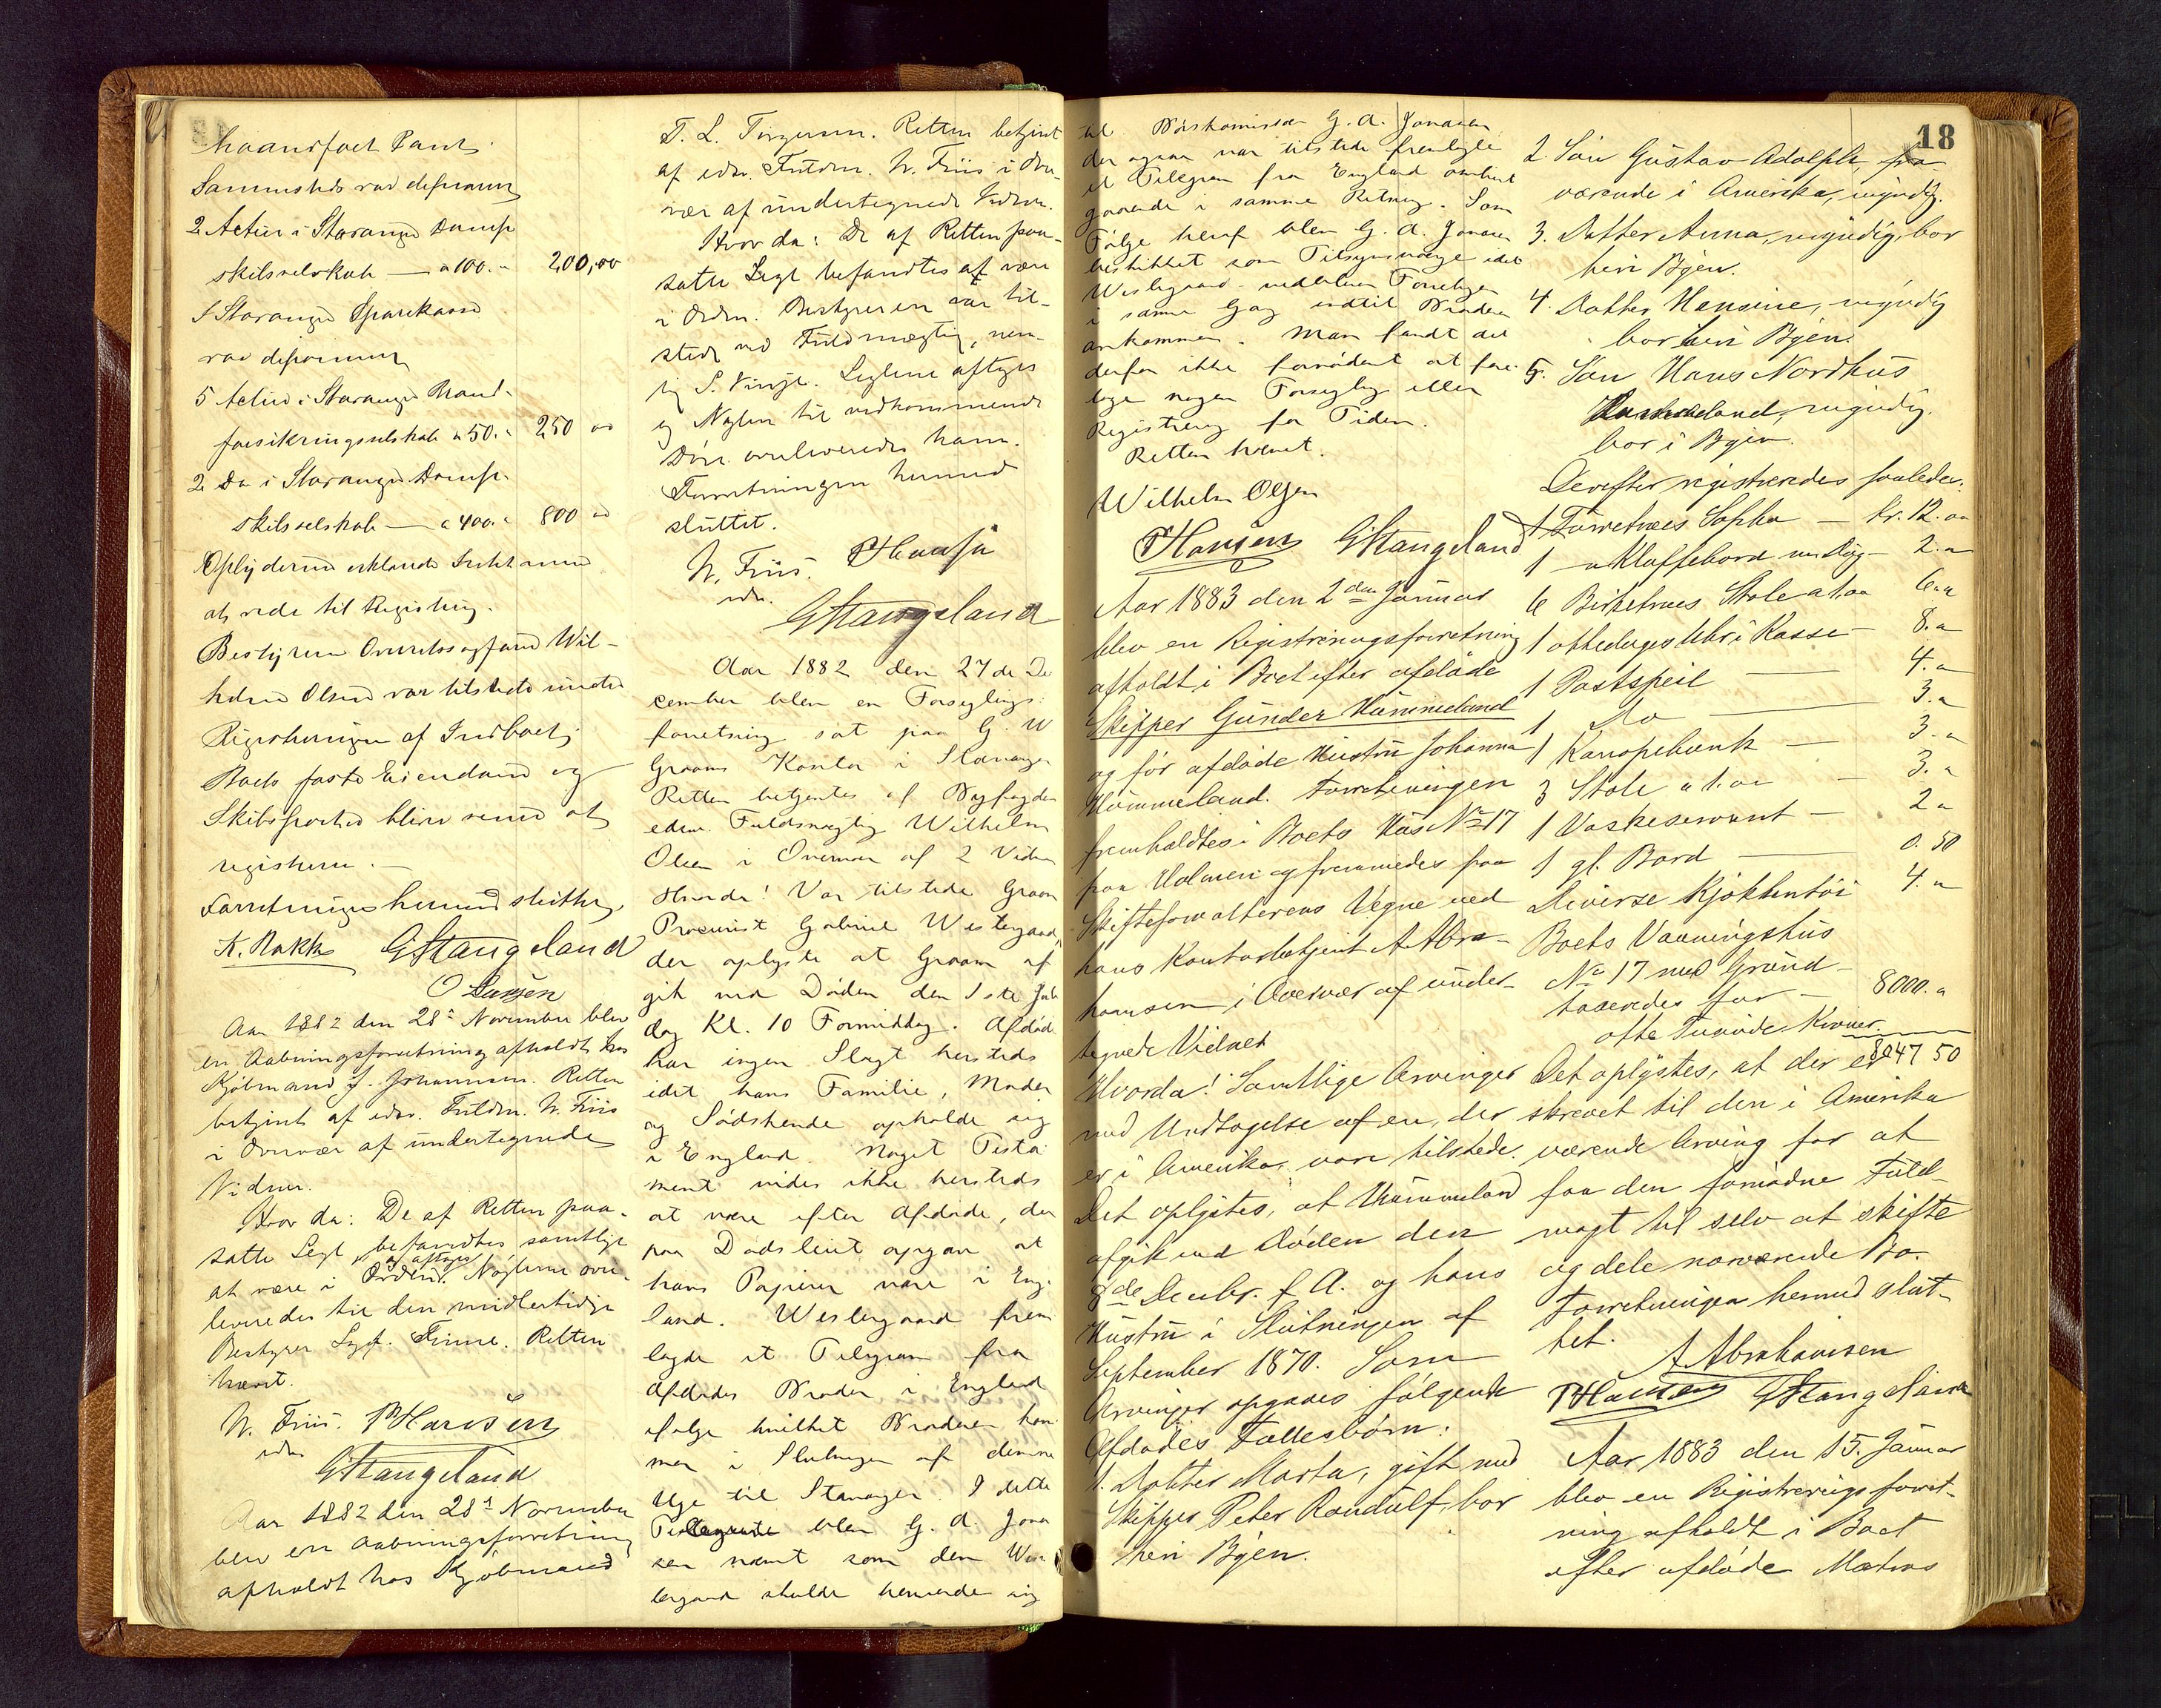 haandfaet Pant.
Sammesteds var deponeret
2 Actier i Stavanger Damp
skibsselskab — a 100.- 200,00
I Stavanger Sparekasse
var deponeret
5 Actier i Stavanger Brand-
forsikringsselskab a 50.- 250 00
2 Do i Stavanger Damp-
skibsselskab — a 400.- 800 00
Oplyderne erklærede Intet mere
at vide til Registrering.
Bestyreren Overretssagfører Wil-
helm Olsen var tilstede under
Registreringen af Indboet;
Boets faste Eiendomme og
Skibsparter bliver senere at
registrere. —
Forretningen hermed sluttet.
K. Bakke GStangeland
O Larsen
Aar 1882 den 28de November blev
en Aabningsforretning afholdt hos
Kjøbmand J. Johannesen. Retten
betjent af edsv. Fuldm. N. Friis
i Overvær af undertegnede
Vidner.
Hvor da: De af Retten paa-
satte Segl befandtes samtlige
at være i Orden og aftoges. Nøglerne over-
leveredes til den midlertidige
Bestyrer Sagf. Finne. Retten
hævet.
N. Friis. PHansen
edsv.
GStangeland
Aar 1882 den 28de November
blev en Aabningsforretning
afholdt hos Kjøbmand
T. L. Torgersen. Retten betjent
af edsv. Fuldm. N. Friis i Over-
vær af undertegnede Vidner.
Hvor da: De af Retten paa-
satte Segl befandtes at være
i Orden. Bestyreren var til-
stede ved Fuldmægtig, nem-
lig S. Vinje. Seglene aftoges
og Nøglen til vedkommende
Dør overleveredes ham.
Forretningen hermed
sluttet.
N. Friis. PHansen
edsv.
GStangeland
Aar 1882 den 27de De
cember blev en Forseglings-
forretning sat paa G. W
Graams Kontor i Stavanger
Retten betjentes af Byfogdens
edsv. Fuldmægtig Wilhelm
Olsen i Overvær af 2 Vidner
Hvorda! Var tilstede Graams
Procurist Gabriel Westergaard,
der oplyste at Graam af
gik ved Døden den 1ste Jule
dag Kl. 10 Formiddag. Afdøde
har ingen Slægt hersteds
idet hans Familie, Moder
og Sødskende opholde sig
i England. Noget Testa
ment vides ikke hersteds
at være efter Afdøde, der
paa Dødsleiet opgav at
hans Papirer vare i Eng-
land. Westergaard frem
lagde et Telegram fra
Afdødes Broder i England
ifølge hvilket Broderen kom
mer i Slutningen af denne
Uge til Stavanger. I dette
Telegram blev G. A. Jona
sen nævnt som den Wes
tergaard skulde henvende sig
18
til Børskomissær G. A. Jonasen
der ogsaa var tilstede fremlagde
et Telegram fra England omhand
gaaende i samme Retning. Som
Følge heraf blev G. A. Jonasen
beskikket som Tilsynsværge idet
Westergaard vedbliver Forretningen
i samme Gang indtil Broderen
ankommer. Man fandt det
derfor ikke fornødent at fore-
tage nogen Forsegling eller
Registrering for Tiden.
Retten hævet.
Wilhelm Olsen
PHansen GStangeland
Aar 1883 den 2den Januar
blev en Registreringsforretning
afholdt i Boet efter afdøde
Skipper Gunder Hummeland
og før afdøde Hustru Johanna
Hummeland. Forretningen
fremholdtes i Boets Hus No 17
paa Holmen og fremmedes paa
Skifteforvalterens Vegne ved
hans Kontorbetjent A Abra-
hamsen i Overvær af under-
tegnede Vidner
Hvorda! Samtlige Arvinger
med Undtagelse af en, der
er i Amerika, vare tilstede.
Det oplystes, at Hummeland
afgik ved Døden den
8de Decbr. f. A. og hans
Hustru i Slutningen af
September 1870. Som
Arvinger opgaves følgende
Afdødes Fællesbørn:
1. Datter Marta, gift med
Skipper Peter Randulf, bor
her i Byen.
2. Søn Gustav Adolph, fra-
værende i Amerika, myndig.
3. Datter Anna, myndig, bor
her i Byen.
4. Datter Hansine, myndig
bor her i Byen.
5. Søn Hans Nordhus
Hummeland, myndig.
bor i Byen.
Derefter registreredes saaledes:
1 Furretræes Sopha — Kr. 12.00
1 — Klaffebord 2.00
6 Birketræes Stole a 1.00 6.00
1 ottedages Uhr i Kasse — 8.00
1 Postspeil — 4.00
1 Do — 3.00
1 Kanapebænk — 3.00
3 Stole a 1.00 — 3.00
1 Vaskeservant — 2.00
1 gl. Bord — 0.50
Diverse Kjøkkentøi 4.00
Boets Vaaningshus
No 17 med Grund-
taxeredes for — 8000.00
otte Tusinde Kroner.
8047 50
Det oplystes, at der er
skrevet til den i Amerika
værende Arving for at
faa den fornødne Fuld-
magt til selv at skifte
og dele nærværende Bo.
Forretningen hermed slut-
tet.
A Abrahamsen
PHansen GStangeland
Aar 1883 den 15. Januar
blev en Registreringsforret-
ning afholdt i Boet
efter afdøde Matros